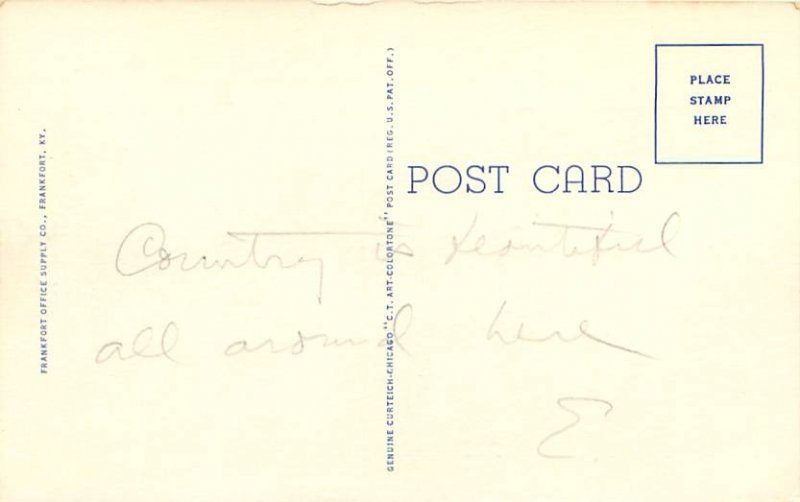 FRANKFORT OFFICE SUPPLY CO., FRANKFORT, KY.
GENUINE CURTEICH-CHICAGO "C.T. ART-COLORTONE" POST CARD (REG. U.S. PAT. OFF.)
PLACE
STAMP
HERE
POST CARD
Country is beautiful
all around here
E.